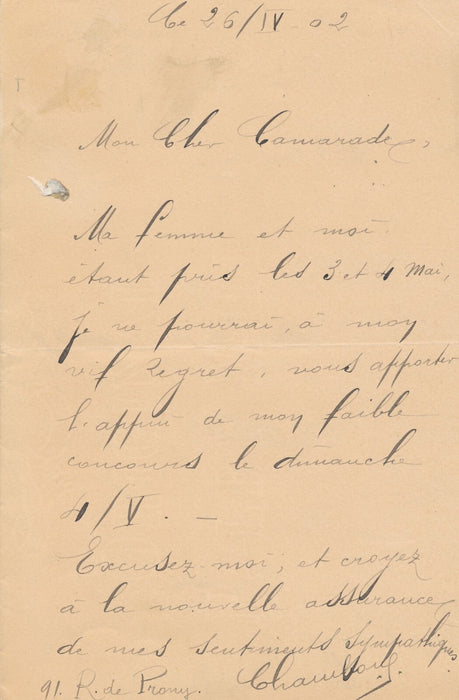 Ce 26/IV - 02
Mon Cher Camarade,
Ma femme et moi
étant pris les 3 et 4 Mai,
je ne pourrai, à mon
vif regret, vous apporter
l'appui de mon faible
concours le dimanche
4/V. —
Excusez-moi, et croyez
à la nouvelle assurance
de mes sentiments sympathiques
91. R. de Prony.